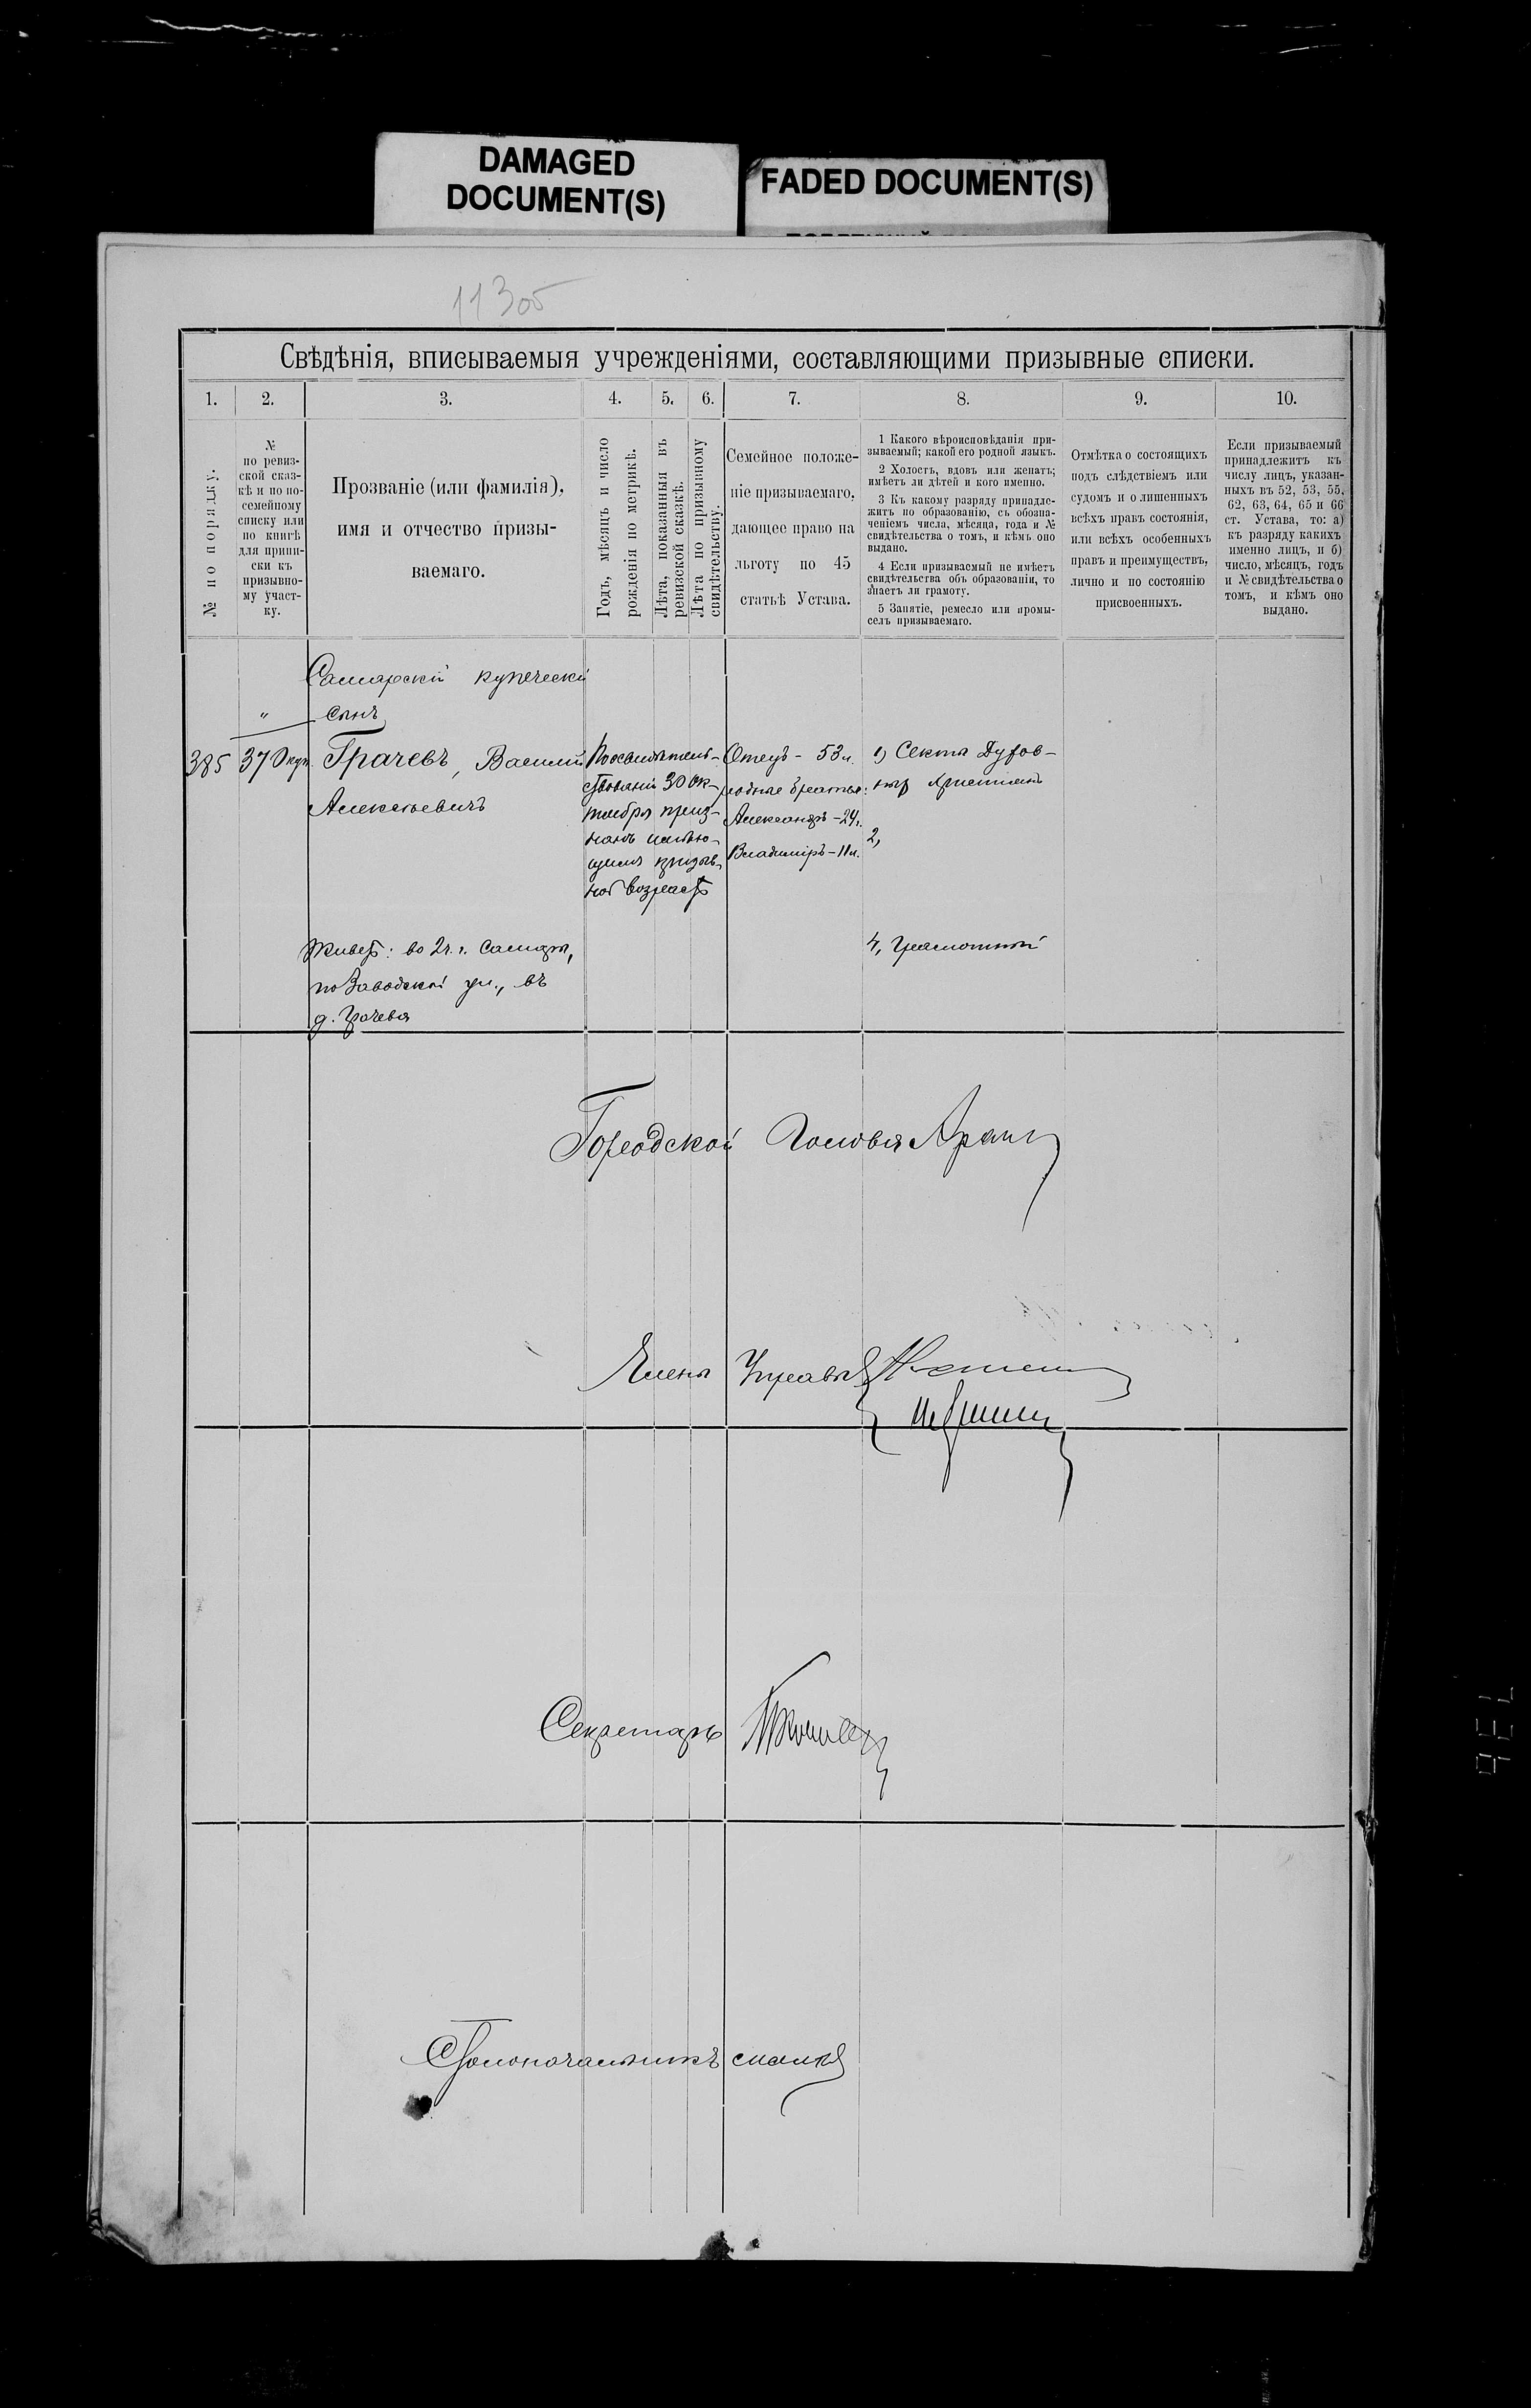 DAMAGED
DOCUMENT(S)
FADED DOCUMENT(S)
11305
Свѣдѣнія, вписываемыя учрежденіями, составляющими призывные списки.
1. 2. 3. 4. 5. 6. 7. 8. 9. 10.
№ по порядку.
№
по ревиз-
ской сказ-
кѣ и по по-
семейному
списку или
по книгѣ
для припи-
ски къ
призывно-
му участ-
ку.
Прозваніе (или фамилія),
имя и отчество призы-
ваемаго.
Годъ, мѣсяцъ и число
рожденія по метрикѣ.
Лѣта, показанныя въ
ревизской сказкѣ.
Лѣта по призывному
свидѣтельству.
Семейное положе-
ніе призываемаго,
дающее право на
льготу по 45
статьѣ Устава.
1 Какого вѣроисповѣданія при-
зываемый; какой его родной языкъ.
2 Холостъ, вдовъ или женатъ;
имѣетъ ли дѣтей и кого именно.
3 Къ какому разряду принадле-
житъ по образованію, съ обозна-
ченіемъ числа, мѣсяца, года и №
свидѣтельства о томъ, и кѣмъ оно
выдано.
4 Если призываемый не имѣетъ
свидѣтельства объ образованіи, то
знаетъ ли грамоту.
5 Занятіе, ремесло или промы-
селъ призываемаго.
Отмѣтка о состоящихъ
подъ слѣдствіемъ или
судомъ и о лишенныхъ
всѣхъ правъ состоянія,
или всѣхъ особенныхъ
правъ и преимуществъ,
лично и по состоянію
присвоенныхъ.
Если призываемый
принадлежитъ къ
числу лицъ, указан-
ныхъ въ 52, 53, 55,
62, 63, 64, 65 и 66
ст. Устава, то: а)
къ разряду какихъ
именно лицъ, и б)
число, мѣсяцъ, годъ
и № свидѣтельства о
томъ, и кѣмъ оно
выдано.
Самарскій купеческій
" сынъ
385 37 Грачевъ, Василій
Алексѣевичъ
Живетъ: во 2 ч. г. Самары,
по Заводской ул., въ
д. Грачева
По освидѣтель-
ствованіи 30 Ок-
тября приз-
нанъ имѣю-
щимъ призыв-
ной возрастъ
Отецъ - 53 л.
родные братья:
Александръ - 24 л.
Владиміръ - 11 л.
1) Секты Духов-
ныхъ Христіанъ
2,
4, Грамотный
Городской Голова
Члены Управы
Секретарь
Столоначальникъ